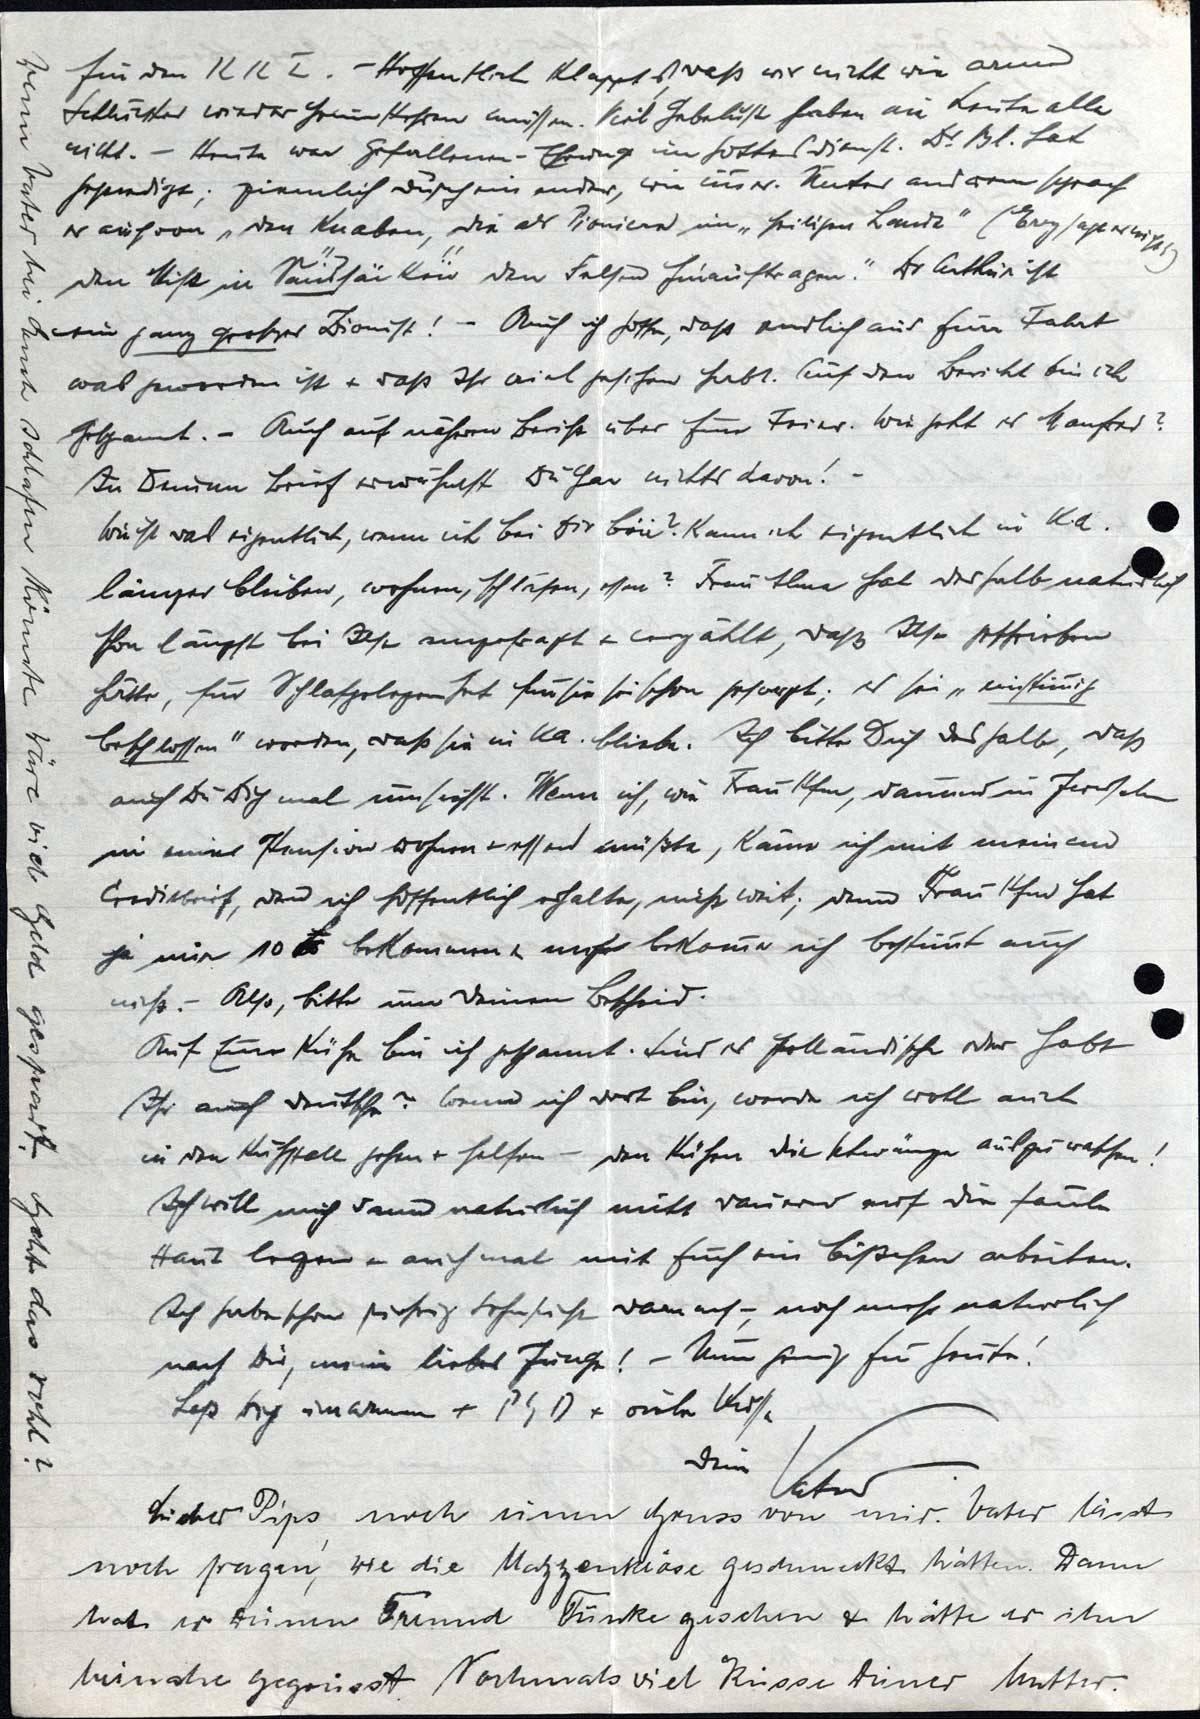 für den KKL. – Hoffentlich klappt's, daß wir nicht wie arme
Schlucker wieder heimkehren müssen. Viel Gebelust haben die Leute alle
nicht. – Heute war Gefallenen-Ehrung im Gottesdienst. Dr. Bl. hat
gepredigt; ziemlich durcheinander, wie immer. Unter anderem sprach
er auch von „den Knaben, die als Pioniere im „heiligen Lande"
den Mist in Säcken den Felsen hinauftragen." Dr Arthur ist
ein ganz großer Zionist! – Auch ich hoffe, daß endlich aus Eurer Fahrt
was geworden ist + daß Ihr viel gesehen habt. Auf den Bericht bin ich
gespannt. – Auch auf näheren Bericht über Eure Feier. Wie geht es Manfred?
In Deinem Brief erwähnst Du gar nichts davon! –
Wie ist das eigentlich, wenn ich bei Dir bin? Kann ich eigentlich in Ka.
länger bleiben, wohnen, schlafen, essen? Frau hat deshalb natürlich
schon längst bei Ilse angefragt + erzählt, daß Ilse geschrieben
hätte, für Schlafgelegenheit für sie sei schon gesorgt; es sei „einstimmig
beschlossen" worden, daß sie in Ka. bliebe. Ich bitte Dich deshalb, daß
auch Du Dich mal umsiehst. Wenn ich, wie Frau Kfm, dauernd in Jerusalem
in einer Pension wohnen + essen müßte, käme ich mit meinem
Creditbrief, den ich hoffentlich erhalte, nicht weit; denn Frau Kfm hat
ja nur 10 £ bekommen + mehr bekomme ich bestimmt auch
nicht. – Also, bitte um Deinen Bescheid.
Auf Eure Kühe bin ich gespannt. Sind es holländische oder habt
Ihr auch deutsche? Wenn ich dort bin, werde ich wohl auch
in den Kuhstall gehen + helfen – den Kühen die Schwänze auszuwaschen!
Ich will mich dann natürlich nicht dauernd auf die faule
Haut legen + auch mal mit Euch ein bißchen arbeiten.
Ich habe schon richtig Sehnsucht danach –, noch mehr natürlich
nach Dir, mein lieber Junge! – Nun genug für heute!
Laß Dich umarmen + + viele Küsse
Dein Vater
Lieber Pips, noch einen Gruss von mir. Vater lässt
noch fragen, wie die Mazzenklöse geschmeckt hätten. Dann
hat er Deinen Freund Funke gesehen & hätte er ihn
beinahe gegrüsst. Nochmals viel Küsse Deiner Mutter.
Wenn Vater bei Euch schlafen könnte wäre viel Geld gespart. Geht das wohl?